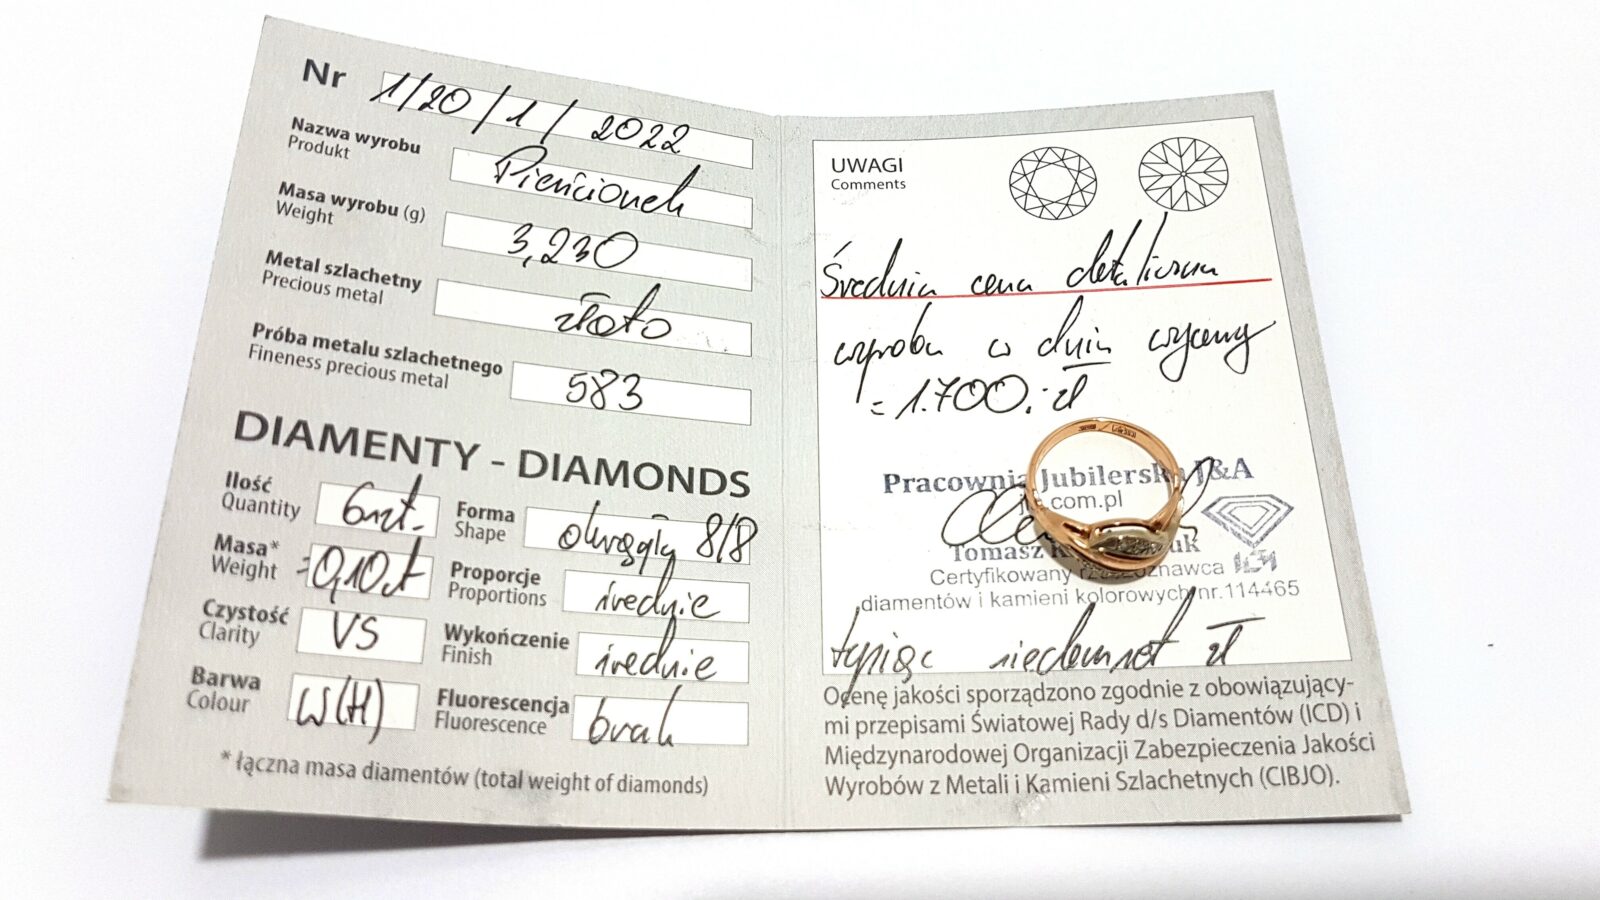 Nr 1/20/1/2022
Nazwa wyrobu Pierścionek
Produkt
Masa wyrobu (g) 3,230
Weight
Metal szlachetny złoto
Precious metal
Próba metalu szlachetnego 583
Fineness precious metal
DIAMENTY - DIAMONDS
Ilość 6szt.
Quantity
Forma okrągły 8/8
Shape
Masa* =0,10ct
Weight
Proporcje średnie
Proportions
Czystość VS
Clarity
Wykończenie średnie
Finish
Barwa W(H)
Colour
Fluorescencja brak
Fluorescence
* łączna masa diamentów (total weight of diamonds)
UWAGI
Comments
Średnia cena detaliczna
wyrobu w dniu wyceny
= 1.700,- zł
Pracownia Jubilerska J&A
.com.pl
Tomasz
Certyfikowany rzeczoznawca
diamentów i kamieni kolorowych nr.114465
tysiąc siedemset zł
Ocenę jakości sporządzono zgodnie z obowiązujący-
mi przepisami Światowej Rady d/s Diamentów (ICD) i
Międzynarodowej Organizacji Zabezpieczenia Jakości
Wyrobów z Metali i Kamieni Szlachetnych (CIBJO).